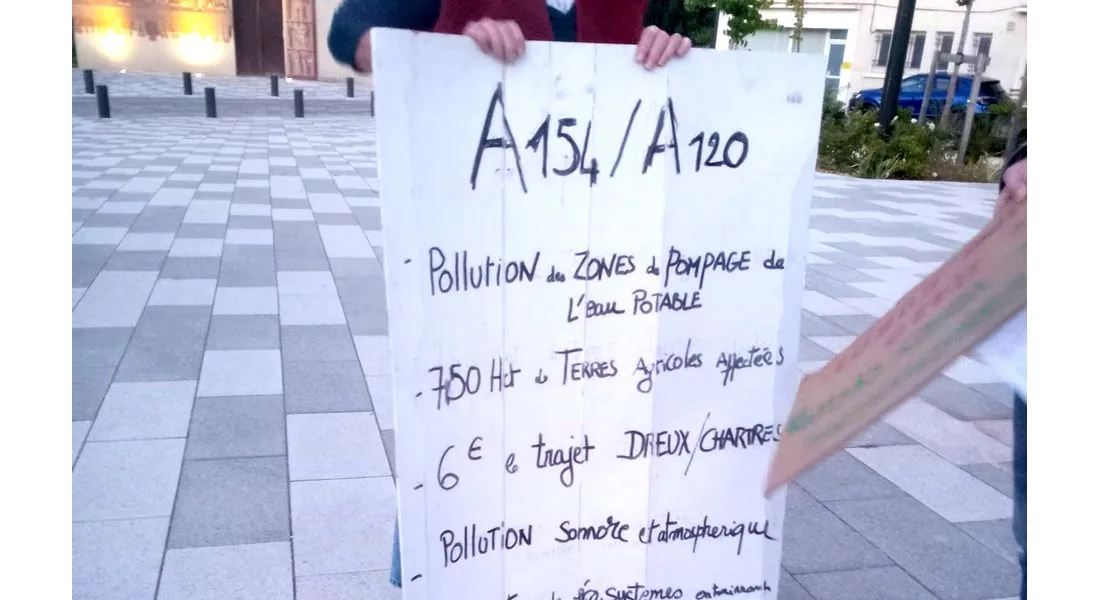 A154/A120
- Pollution des ZONES de POMPAGE de
L'eau POTABLE
- 750 Hct de TERRES Agricoles Affectées
- 6€ le trajet DREUX/CHARTRES
- POLLUTION Sonnore et atmospherique
écosystèmes entrainant